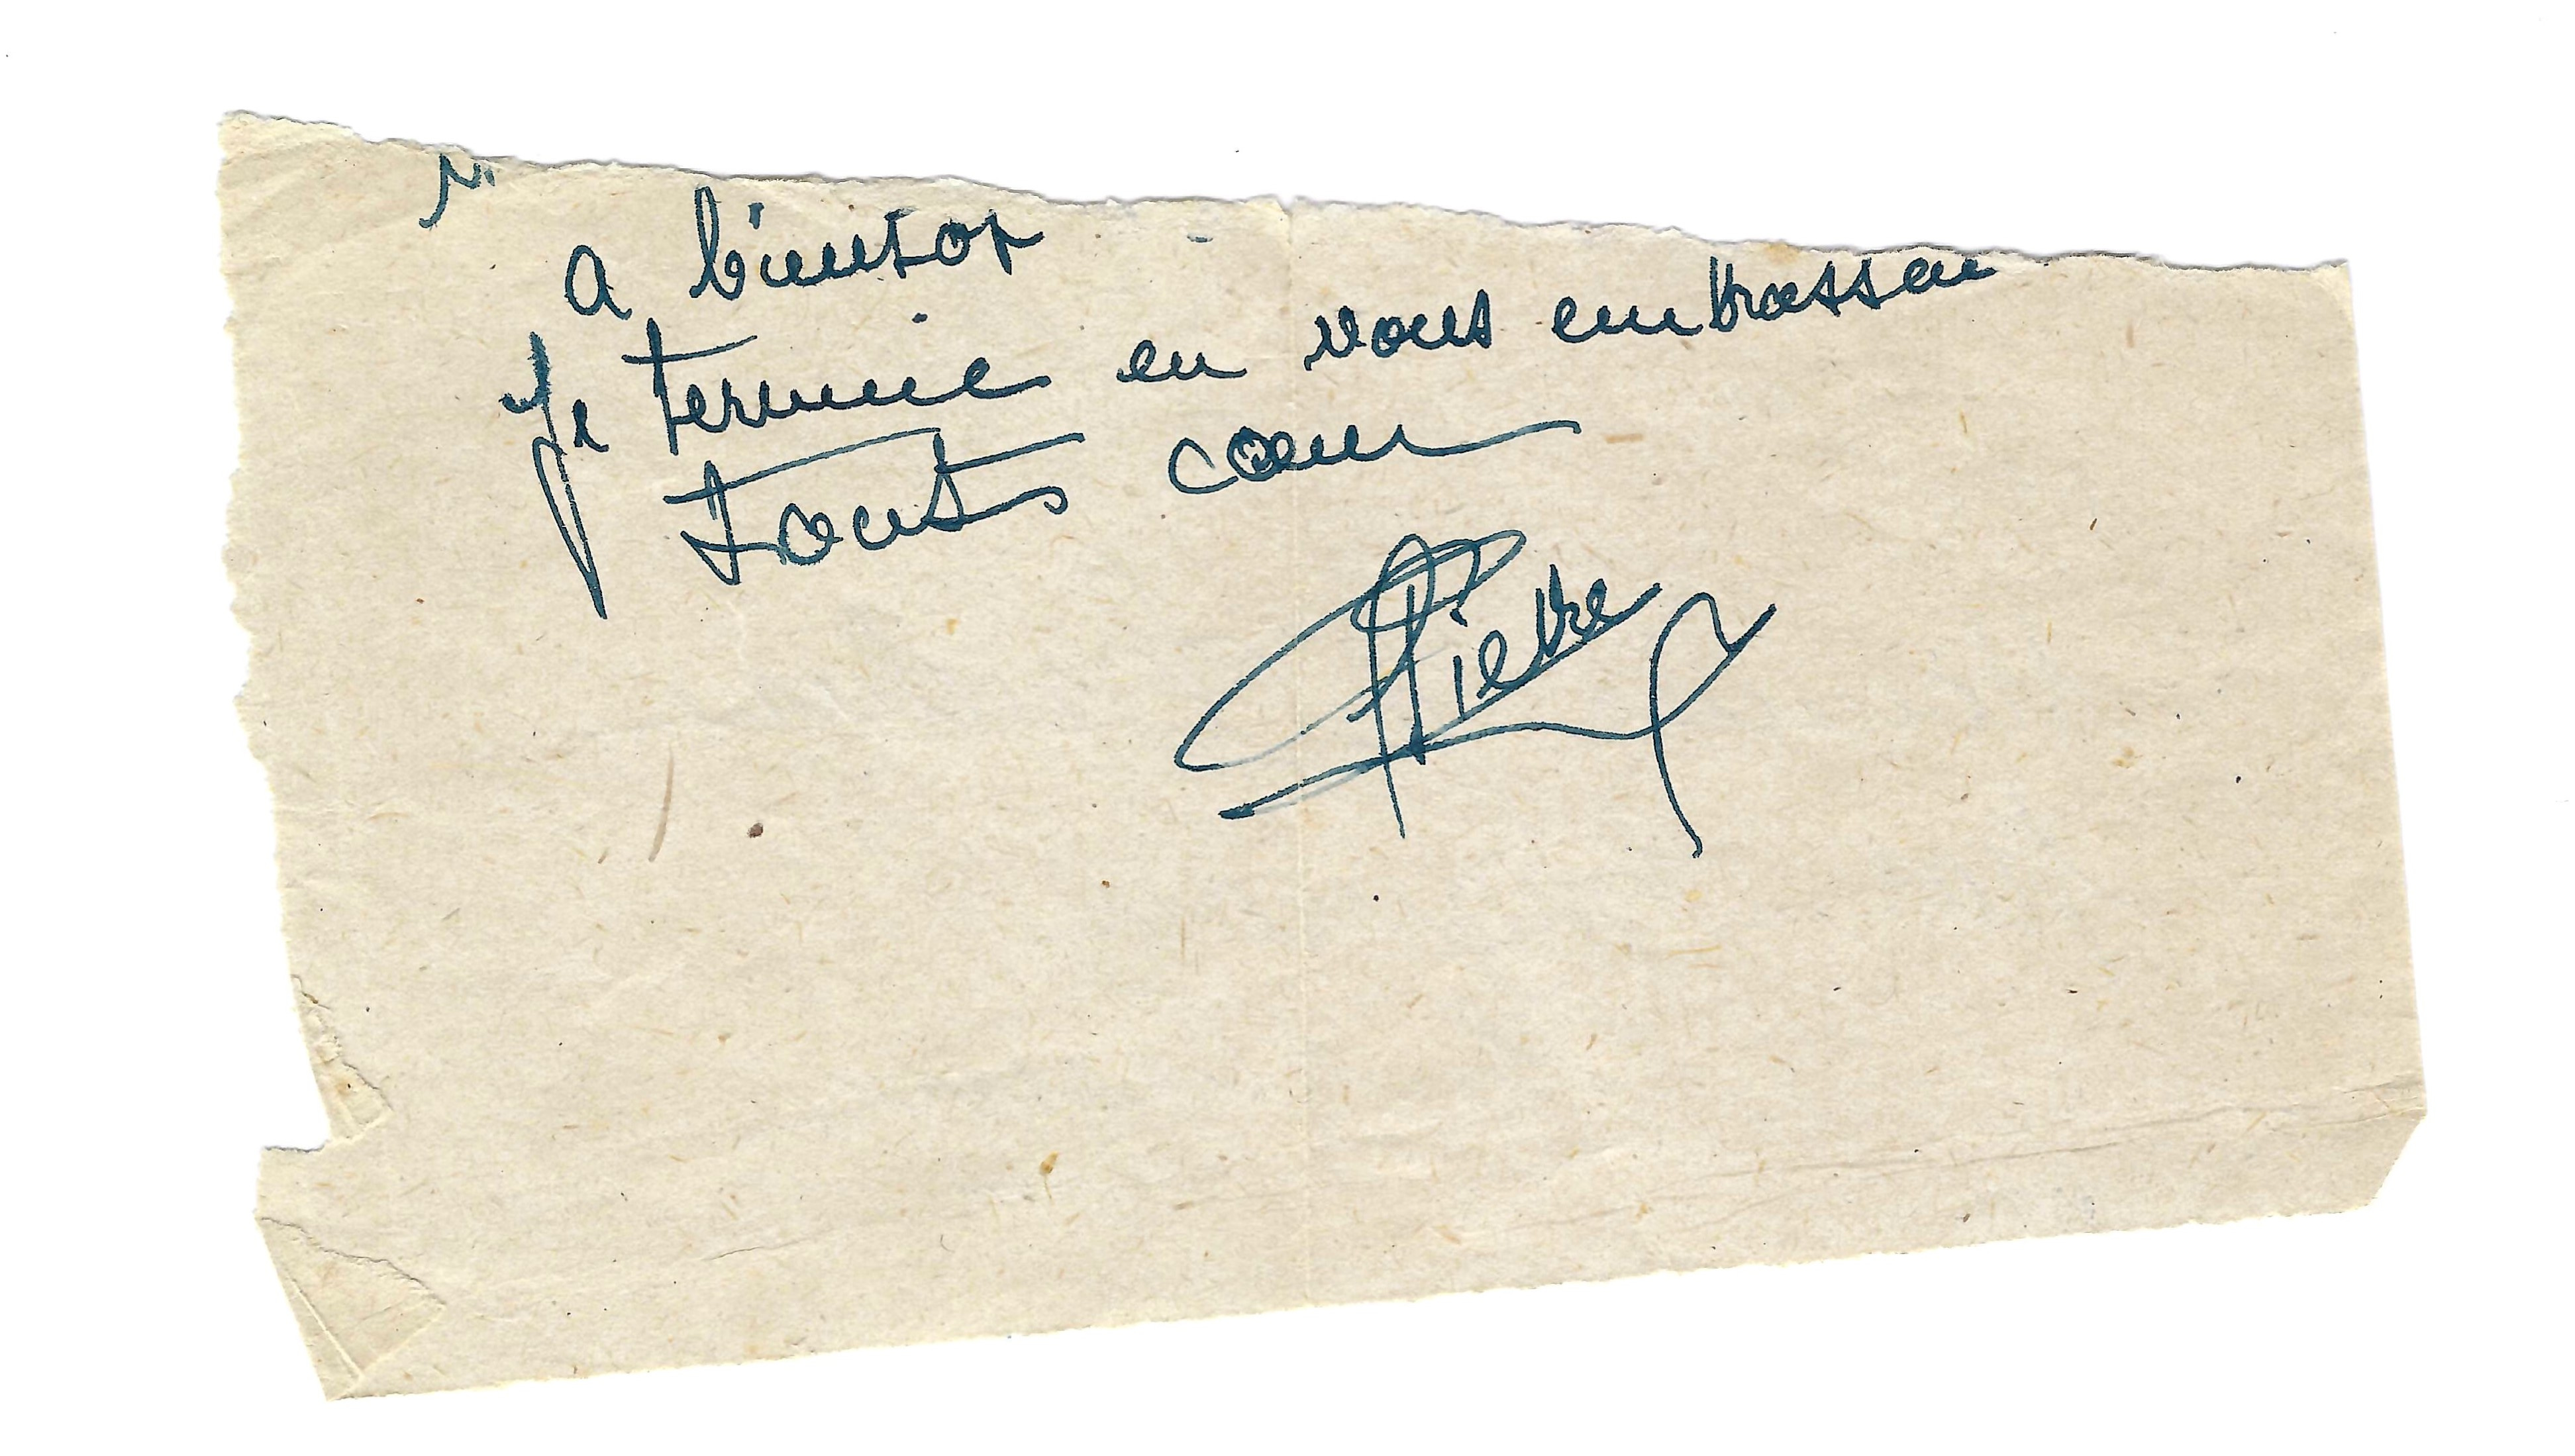 a bientot
Je termine en vous embrassan
touts coeur
Pierre